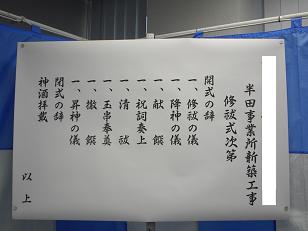 半田事業所新築工事
修祓式次第
開式の辞
一、修祓の儀
一、降神の儀
一、献饌
一、祝詞奏上
一、清祓
一、玉串奉奠
一、撤饌
一、昇神の儀
閉式の辞
神酒拝戴
以上